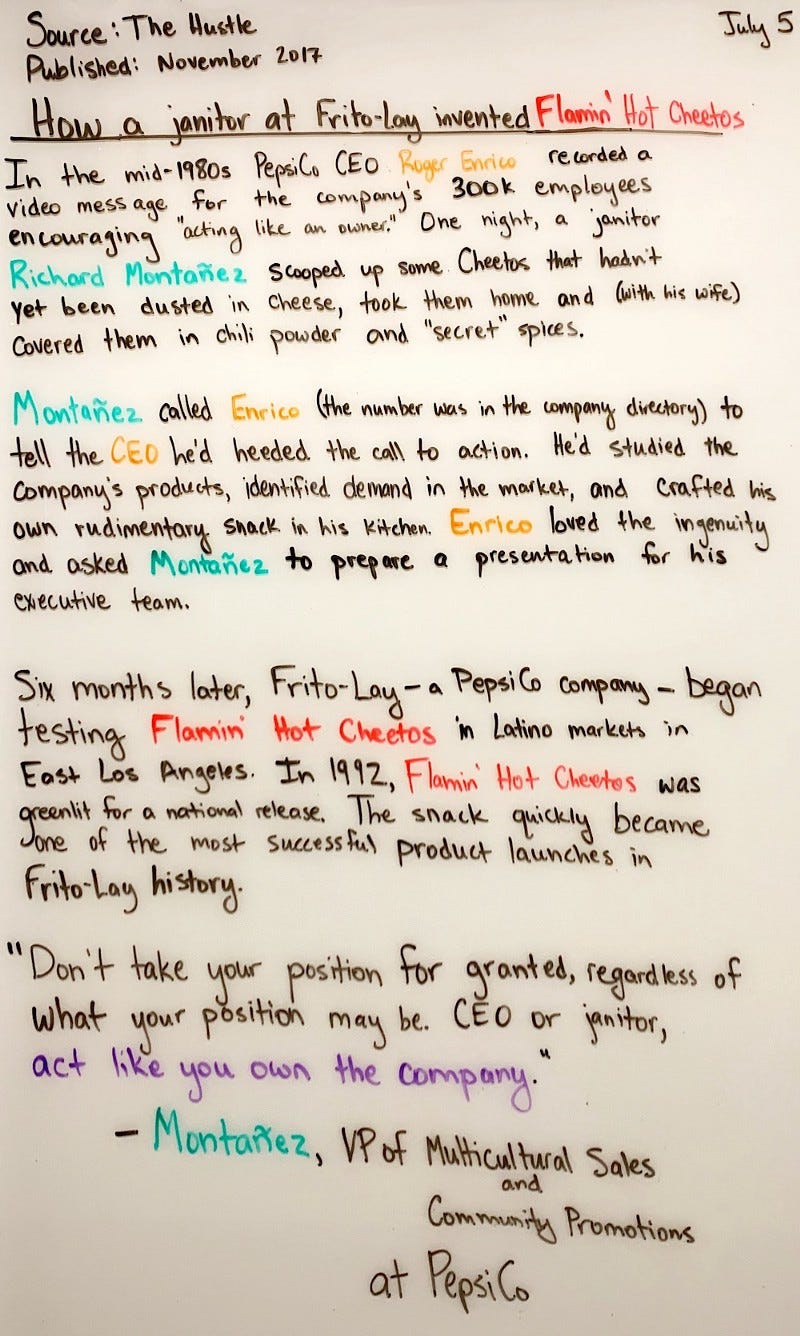 Source: The Hustle
July 5
Published: November 2017
How a janitor at Frito-Lay invented Flamin' Hot Cheetos
In the mid-1980s PepsiCo CEO Roger Enrico recorded a
video message for the company's 300k employees
encouraging "acting like an owner." One night, a janitor
Richard Montañez scooped up some Cheetos that hadn't
yet been dusted in cheese, took them home and (with his wife)
covered them in chili powder and "secret" spices.
Montañez called Enrico (the number was in the company directory) to
tell the CEO he'd heeded the call to action. He'd studied the
company's products, identified demand in the market, and crafted his
own rudimentary snack in his kitchen. Enrico loved the ingenuity
and asked Montañez to prepare a presentation for his
executive team.
Six months later, Frito-Lay - a PepsiCo company - began
testing Flamin' Hot Cheetos in Latino markets in
East Los Angeles. In 1992, Flamin' Hot Cheetos was
greenlit for a national release. The snack quickly became
one of the most successful product launches in
Frito-Lay history.
"Don't take your position for granted, regardless of
what your position may be. CEO or janitor,
act like you own the company."
- Montañez, VP of Multicultural Sales
and
Community Promotions
at PepsiCo